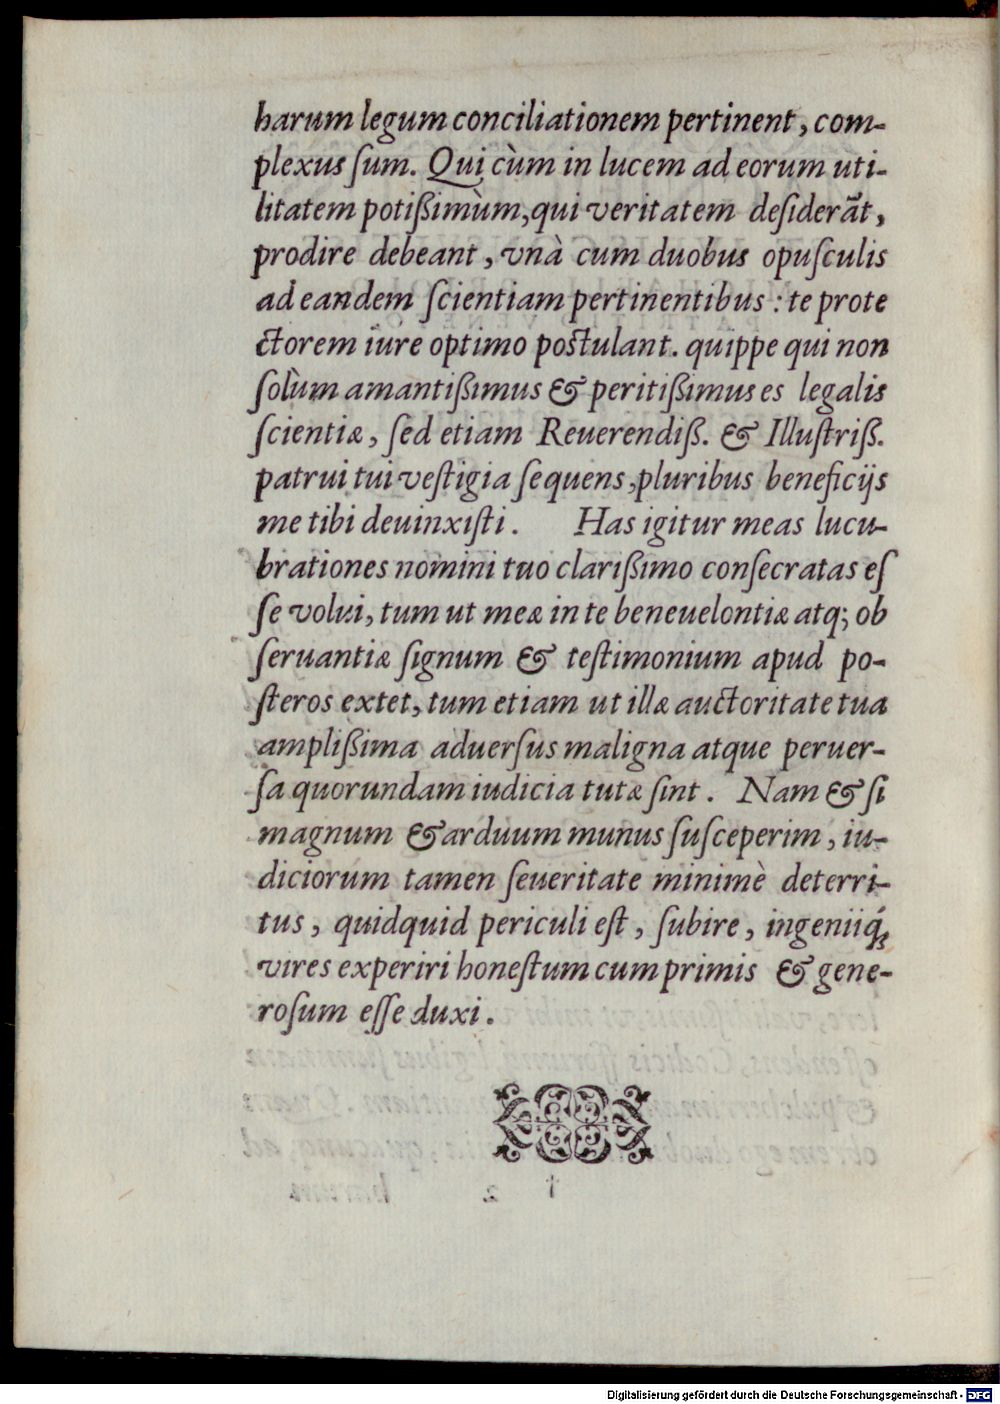 harum legum conciliationem pertinent, com-
plexus ſum. Qui cùm in lucem ad eorum uti-
litatem potißimùm, qui veritatem deſiderāt,
prodire debeant, vnà cum duobus opuſculis
ad eandem ſcientiam pertinentibus : te prote
ctorem iure optimo poſtulant. quippe qui non
ſolùm amantißimus & peritißimus es legalis
ſcientiæ, ſed etiam Reuerendiß. & Illuſtriß.
patrui tui veſtigia ſequens, pluribus beneficijs
me tibi deuinxiſti. Has igitur meas lucu-
brationes nomini tuo clarißimo conſecratas eſ
ſe volui, tum ut meæ in te beneuelontiæ atq; ob
ſeruantiæ ſignum & teſtimonium apud po-
ſteros extet, tum etiam ut illæ auctoritate tua
amplißima aduerſus maligna atque peruer-
ſa quorundam iudicia tutæ ſint. Nam & ſi
magnum & arduum munus ſuſceperim, iu-
diciorum tamen ſeueritate minimè deterri-
tus, quidquid periculi eſt, ſubire, ingeniiq́;
vires experiri honeſtum cum primis & gene-
roſum eſſe duxi.
Digitalisierung gefördert durch die Deutsche Forschungsgemeinschaft - DFG